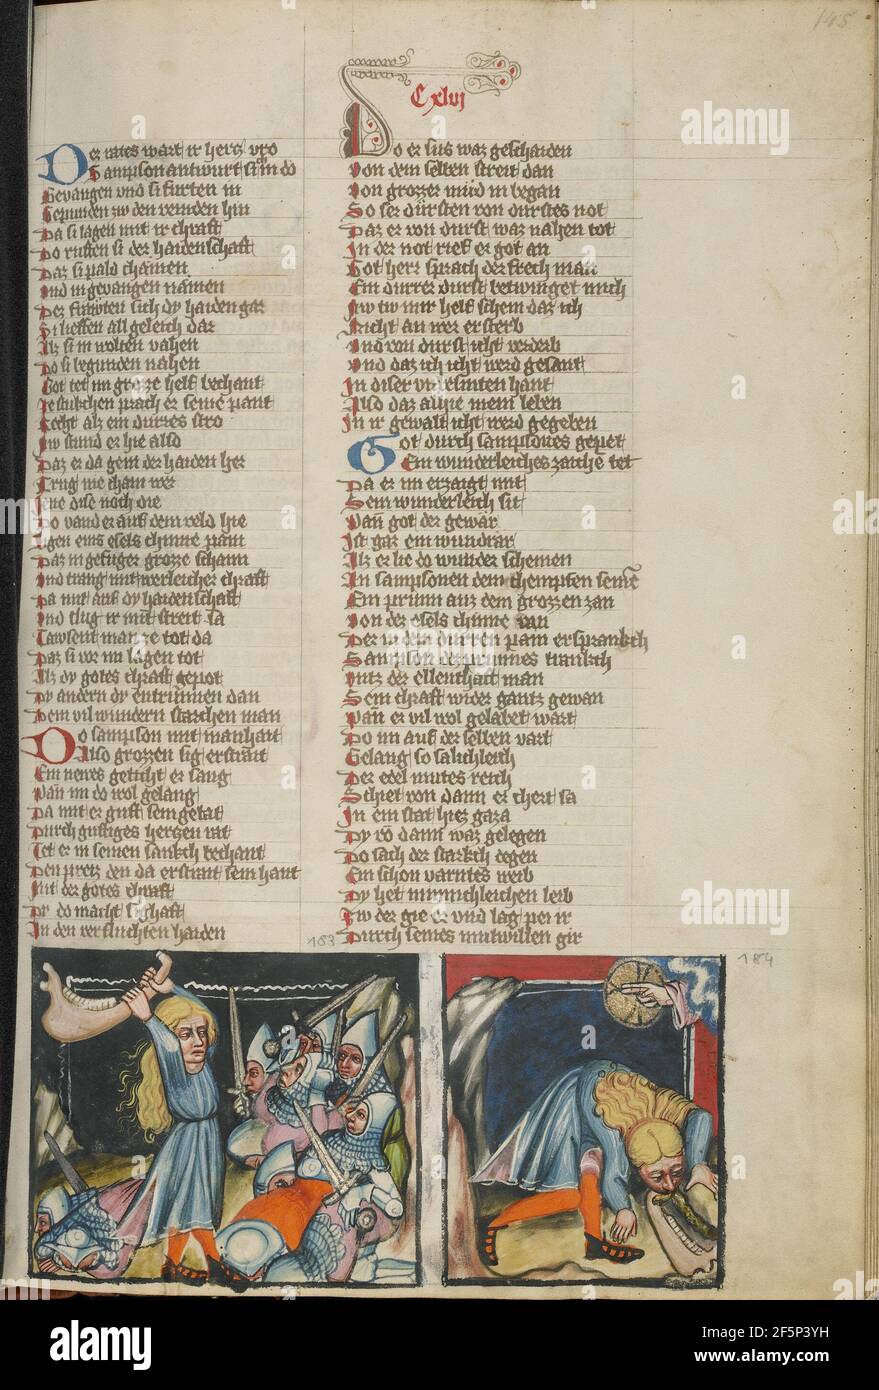 145
Cxlvj
Der rates wart ir hertz vro
Sampson antwurt si in do
Gevangen vnd si furten in
Gepunden zw den veinden hin
Da si lagen mit ir chraft
Do rufften si der haidenschaft
Daz si pald chamen
Vnd in gevangen namen
Der frewten sich dy haiden gar
Si lieffen all geleich dar
Alz si in wolten vahen
Do si begunden nahen
Got tet im grozze helf bechant
Je stukchen prach er seine pant
Recht alz ein durres stro
Nw stund er hie also
Daz er da gein der haiden her
Trug nie chain wer
Jene dise noch die
Do vand er auf dem veld hie
Ligen eins esels chinne pain
Daz in gefuger grozze schain
Vnd trang mit werleicher chraft
Da mit auf dy haidenschaft
Vnd slug ir mit streit sa
Tawsent man ze tot da
Daz si vor im lagen tot
Alz dy gotes chraft gepot
Dy andern dy entrunnen dan
Dem vil wundern starchen man
Do sampson mit manhait
Also grozzen sig erstrait
Ein newes geticht er sang
Wan im do wol gelang
Da mit er guft sein getat
Durch guftiges hertzen rat
Tet er in seinen sankch bechant
Den preiz den da erstrait sein hant
Mit der gotes chraft
Dy do macht sighaft
In den verfluchten haiden
Do er sus waz geschaiden
Von dem selben streit dan
Von grozzer müd in began
So ser dürsten von durstes not
Daz er von durst waz nahen tot
In der not rief er got an
Got herr sprach der frech man
Ein durrer durst betwinget mich
Nw tw mir helf schein daz ich
Nicht an wer ersterb
Vnd von durst icht verderb
Vnd daz ich icht werd gesant
In diser vnbesniten hant
Also daz auhie mein leben
In ir gewalt icht werd gegeben
Got durch sampsones gepet
Ein wunderleiches zaichen tet
Da er im erzaigt mit
Sein wunderleich sit
Wan got der gewar
Ist gar ein wundrar
Alz er lie do wunder scheinen
An sampsonen dem chempfen seinen
Ein prunn auz dem grozzen zan
Von der esels chinne ran
Der in dem durren pain ersprankch
Sampson dez prunnes trankch
Vntz der ellenthaft man
Sein chraft wider gantz gewan
Wan er vil wol gelabet wart
Do im auf der selben vart
Gelang so saelichleich
Der edel mutes reich
Schiet von dann er chert sa
In ein stat hiez gaza
Dy vo dann waz gelegen
Do sach der starkch degen
Ein schon varntes weib
Dy het minnichleichen leib
Zw der gie er vnd lag pei ir
Durch seines mutwillen gir
183
184
alamy
Image ID: 2F5P3YH
www.alamy.com